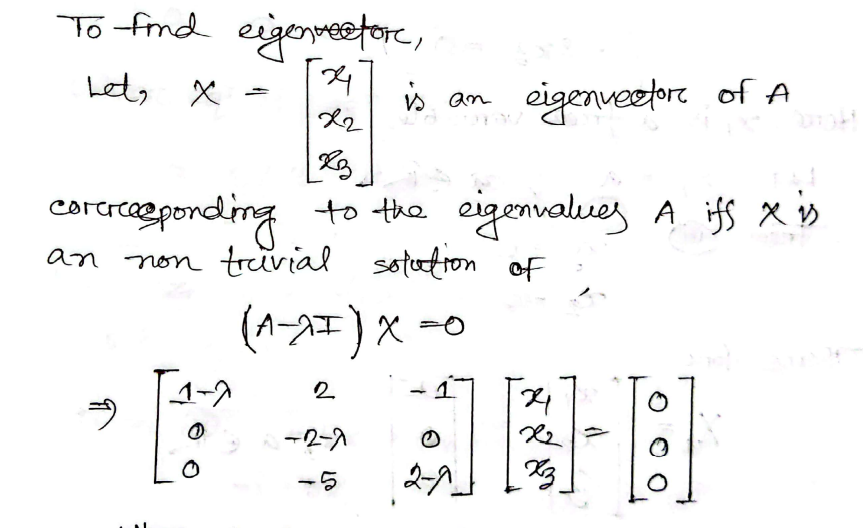 To find eigenvector,
Let, X = [x1 x2 x3] is an eigenvector of A
corresponding to the eigenvalues A iff X is
an non trivial solution of
(A-λI) X = 0
⇒ [1-λ 2 -1; 0 -2-λ 0; 0 -5 2-λ] [x1; x2; x3] = [0; 0; 0]